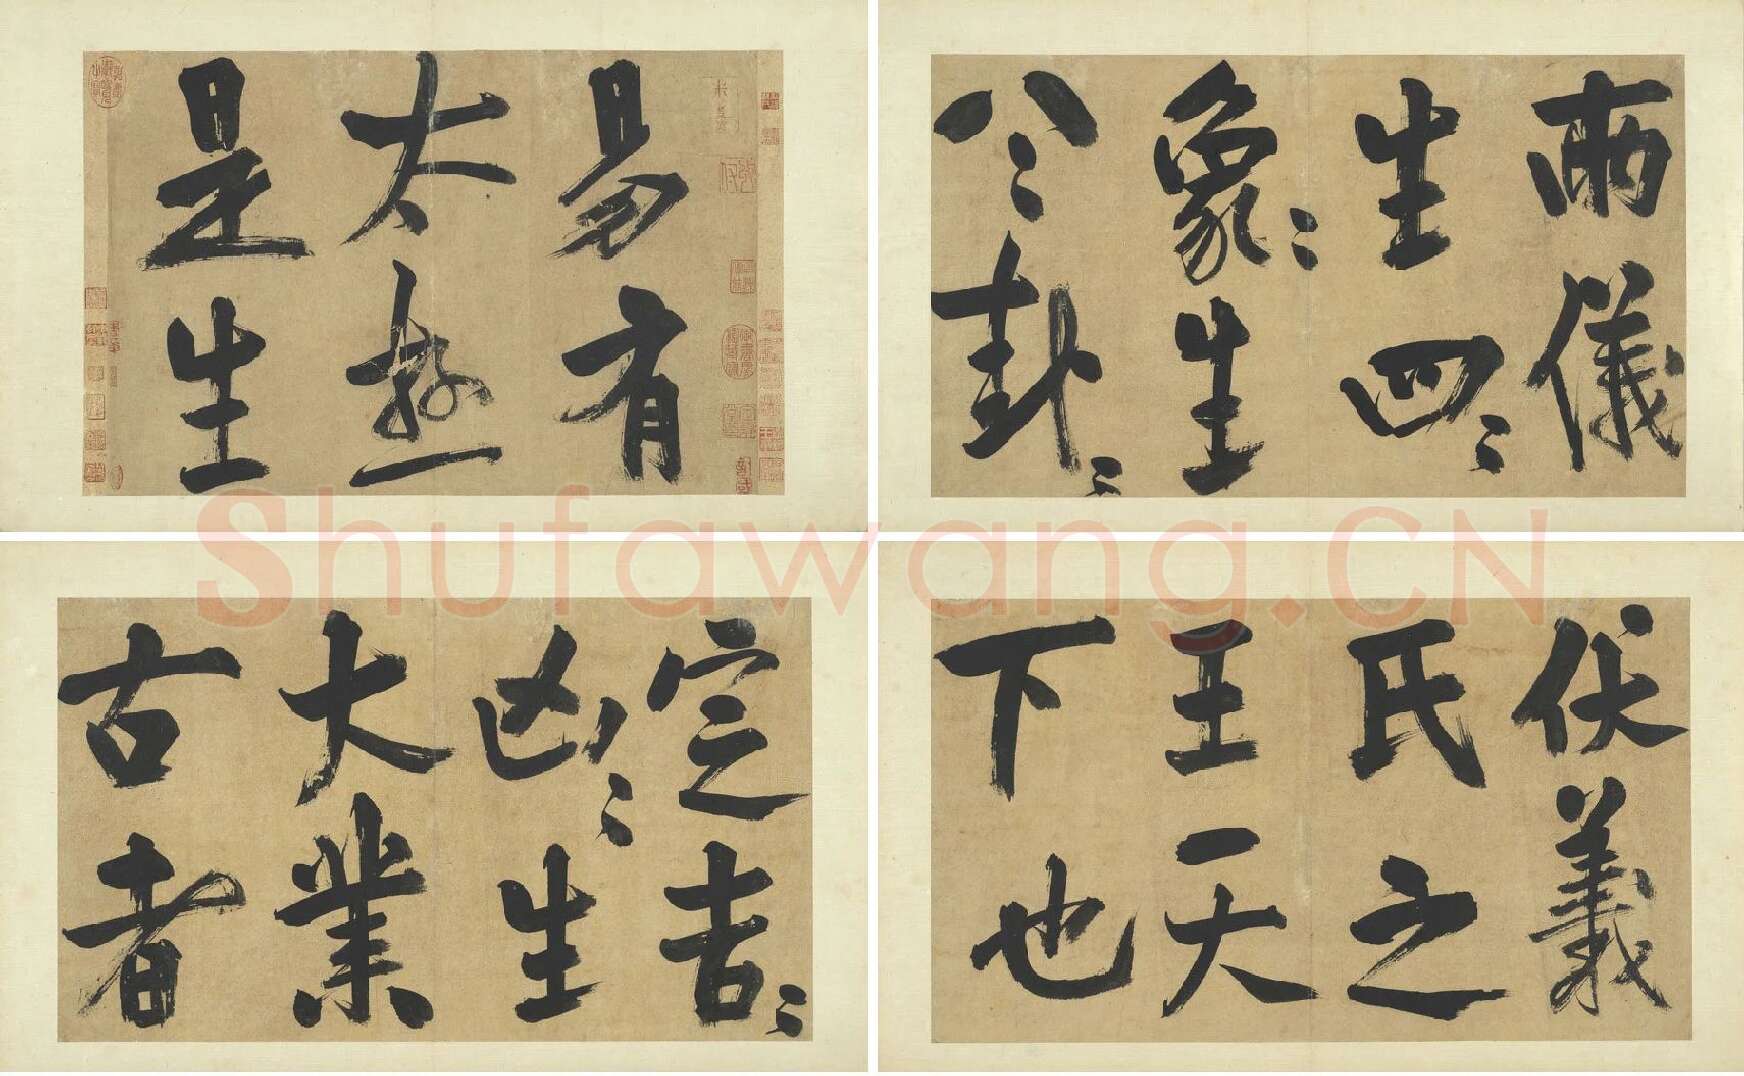 易有
太極
是生
兩儀
生四〻
象〻生
八〻卦〻
定吉〻
凶〻生
大業
古者
伏羲
氏之
王天
下也
Shufawang.CN